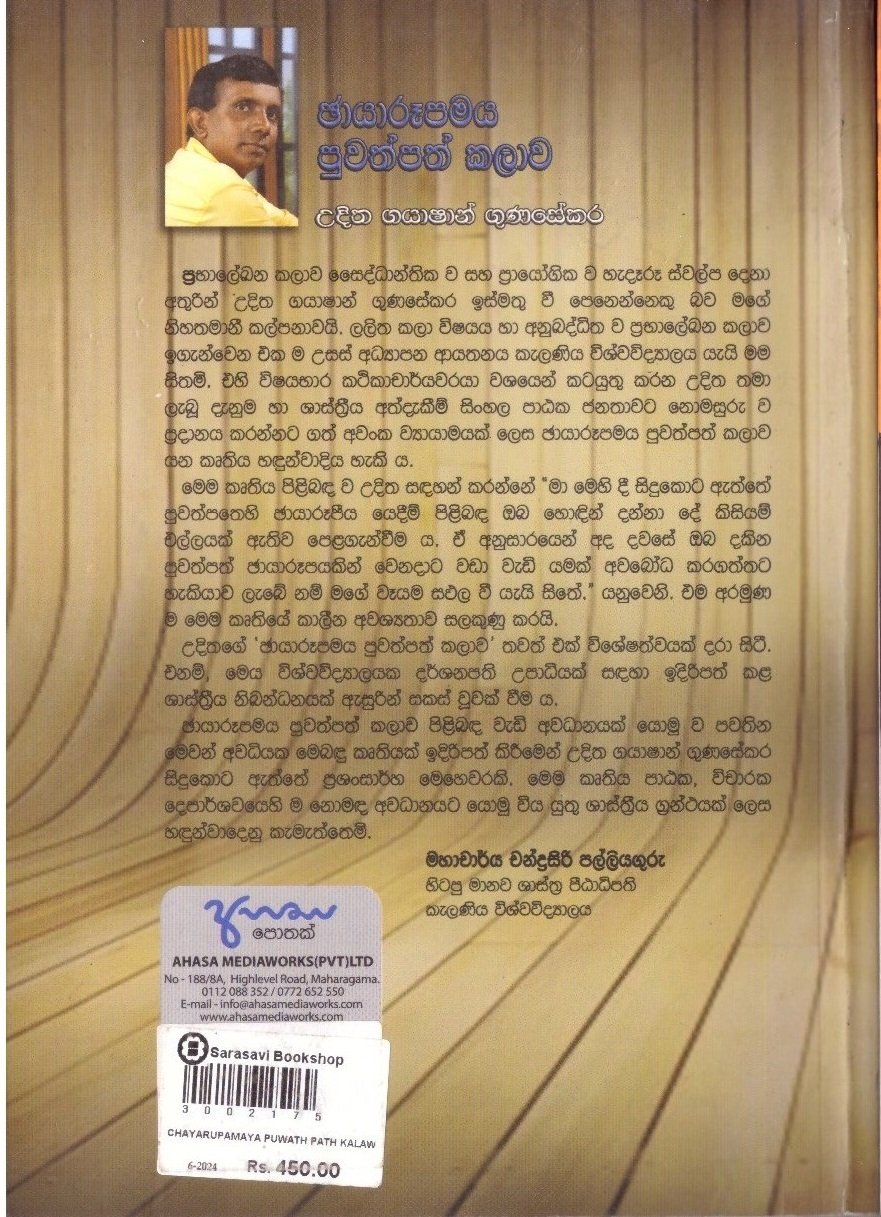 ඡායාරූපමය
පුවත්පත් කලාව
උදිත ගයාෂාන් ගුණසේකර
ප්‍රභාලේඛන කලාව සෛද්ධාන්තික ව සහ ප්‍රායෝගික ව හැදෑරූ ස්වල්ප දෙනා
අතුරින් උදිත ගයාෂාන් ගුණසේකර ඉස්මතු වී පෙනෙන්නෙකු බව මගේ
නිහතමානී කල්පනාවයි. ලලිත කලා විෂයය හා අනුබද්ධිත ව ප්‍රභාලේඛන කලාව
ඉගැන්වෙන එක ම උසස් අධ්‍යාපන ආයතනය කැලණිය විශ්වවිද්‍යාලය යැයි මම
සිතමි. එහි විෂයභාර කථිකාචාර්යවරයා වශයෙන් කටයුතු කරන උදිත තමා
ලැබූ දැනුම හා ශාස්ත්‍රීය අත්දැකීම් සිංහල පාඨක ජනතාවට නොමසුරු ව
ප්‍රදානය කරන්නට ගත් අවංක ව්‍යායාමයක් ලෙස ඡායාරූපමය පුවත්පත් කලාව
යන කෘතිය හඳුන්වාදිය හැකි ය.
මෙම කෘතිය පිළිබඳ ව උදිත සඳහන් කරන්නේ "මා මෙහි දී සිදුකොට ඇත්තේ
පුවත්පතෙහි ඡායාරූපීය යෙදීම් පිළිබඳ ඔබ හොඳින් දන්නා දේ කිසියම්
එල්ලයක් ඇතිව පෙළගැන්වීම ය. ඒ අනුසාරයෙන් අද දවසේ ඔබ දකින
පුවත්පත් ඡායාරූපයකින් වෙනදාට වඩා වැඩි යමක් අවබෝධ කරගත්තට
හැකියාව ලැබේ නම් මගේ වෑයම සඵල වී යැයි සිතේ." යනුවෙනි. එම අරමුණ
ම මෙම කෘතියේ කාලීන අවශ්‍යතාව සලකුණු කරයි.
උදිතගේ 'ඡායාරූපමය පුවත්පත් කලාව' තවත් එක් විශේෂත්වයක් දරා සිටී.
එනම්, මෙය විශ්වවිද්‍යාලයක දර්ශනපති උපාධියක් සඳහා ඉදිරිපත් කළ
ශාස්ත්‍රීය නිබන්ධනයක් ඇසුරින් සකස් වූවක් වීම ය.
ඡායාරූපමය පුවත්පත් කලාව පිළිබඳ වැඩි අවධානයක් යොමු ව පවතින
මෙවන් අවධියක මෙබඳු කෘතියක් ඉදිරිපත් කිරීමෙන් උදිත ගයාෂාන් ගුණසේකර
සිදුකොට ඇත්තේ ප්‍රශංසාර්හ මෙහෙවරකි. මෙම කෘතිය පාඨක, විචාරක
දෙපාර්ශවයෙහි ම නොමඳ අවධානයට යොමු විය යුතු ශාස්ත්‍රීය ග්‍රන්ථයක් ලෙස
හඳුන්වාදෙනු කැමැත්තෙමි.
මහාචාර්ය චන්ද්‍රසිරි පල්ලියගුරු
හිටපු මානව ශාස්ත්‍ර පීඨාධිපති
කැලණිය විශ්වවිද්‍යාලය
අහස
පොතක්
AHASA MEDIAWORKS(PVT)LTD
No - 188/8A, Highlevel Road, Maharagama.
0112 088 352 / 0772 652 550
E-mail - info@ahasamediaworks.com
www.ahasamediaworks.com
Sarasavi Bookshop
3002175
CHAYARUPAMAYA PUWATH PATH KALAW
6-2024 Rs. 450.00